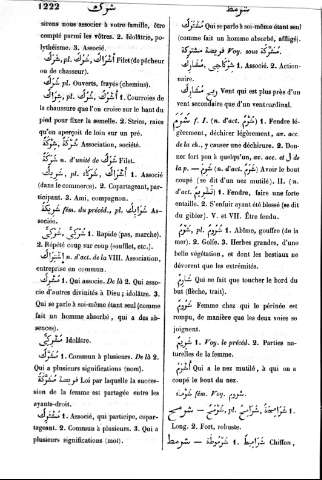 1222 شوك شومط
sirons nous associer à votre famille, être
compté parmi les vôtres. 2. Idolâtrie, po-
lythéisme. 3. Associé.
شَرَك pl. شُرُك, أَشْرَاك Filet (de pêcheur
ou de chasseur).
pl. Ouverts, frayés (chemins).
شِرَاك pl. شُرُك, أَشْرَاك 1. Courroies de
la chaussure que l'on croise sur le bant du
pied pour fixer la semelle. 2. Stries, raies
qu'on aperçoit de loin sur un pré.
شِرْكَة, شَرِكَة Association, société.
شَرَكَة n. d'unité de شَرَك Filet.
شَرِيك pl. شُرَكَاء, أَشْرَاك 1. Associé
(dans le commerce). 2. Copartageant, par-
ticipant. 3. Ami, compagnon.
شَرِيكَة fém. du précéd., pl. شَرَائِك As-
sociée.
1. Rapide (pas, marche).
2. Répété coup sur coup (soufflet, etc.).
اِشْتِرَاك n. d'act. de la VIII. Association,
entreprise en commun.
مُشْرِك 1. Qui associe. De là 2. Qui asso-
cie d'autres divinités à Dieu; idolâtre. 3.
Qui se parle à soi-même étant seul (comme
fait un homme absorbé, qui a des ab-
sences).
مُشْرِكِيّ Idolâtre.
مُشْتَرَك 1. Commun à plusieurs. De là 2.
Qui a plusieurs significations (nom).
فريضة مشتركة Loi par laquelle la succes-
sion de la femme est partagée entre les
ayants-droit.
1. Associé, qui participe, copar-
tageant. 2. Commun à plusieurs. 3. Qui a
plusieurs significations (mot).
مُشْتَرِك Qui se parle à soi-même étant seul
(comme fait un homme absorbé, affligé).
مُشْتَرَكَة Voy. sous فريضة مشتركة
pl. 1. Associé. 2. Action-
naire.
ريح Vent qui est plus près d'un
vent secondaire que d'un vent cardinal.
شَرَمَ f. I. (n. d'act. شَرْم) 1. Fendre lé-
gèrement, déchirer légèrement, av. acc.
de la ch., y causer une déchirure. 2. Don-
nez fort peu à quelqu'un, av. acc. et ل de
la p. — شَرِمَ (n. d'act. شَرَم) Avoir le bout
coupé (se dit d'un nez mutilé). II. (n.
d'act. تَشْرِيم) 1. Fendre, faire une forte
entaille. 2. S'enfuir ayant été blessé (se dit
du gibier). V. et VII. Être fendu.
شَرْم pl. شُرُوم 1. Abîme, gouffre (de la
mer). 2. Golfe. 3. Herbes grandes, d'une
belle végétation, et dont les bestiaux ne
dévorent que les extrémités.
شَارِم Qui ne fait que toucher le bord du
but (flèche, trait).
شَرُوم Femme chez qui le périnée est
rompu, de manière que les deux voies se
joignent.
شَرِيم 1. Voy. le précéd. 2. Parties na-
turelles de la femme.
أَشْرَم Qui a le nez mutilé, à qui on a
coupé le bout du nez.
fém. Voy. شروم.
شرمح — شَرْمَح pl. شَرَامِح, شَرَامِحَة 1.
Long. 2. Fort, robuste.
شرمط — شَرْمُوطَة 1. شَرَامِيط Chiffon,